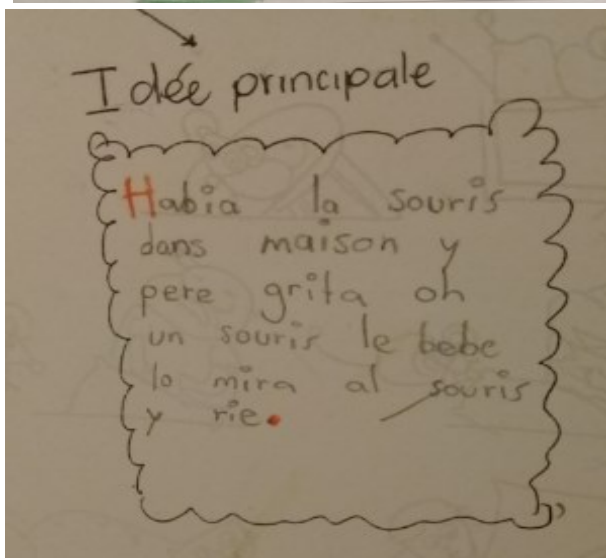 Idée principale
Habia la souris
dans maison y
pere grita oh
un souris le bebe
lo mira al souris
y rie.